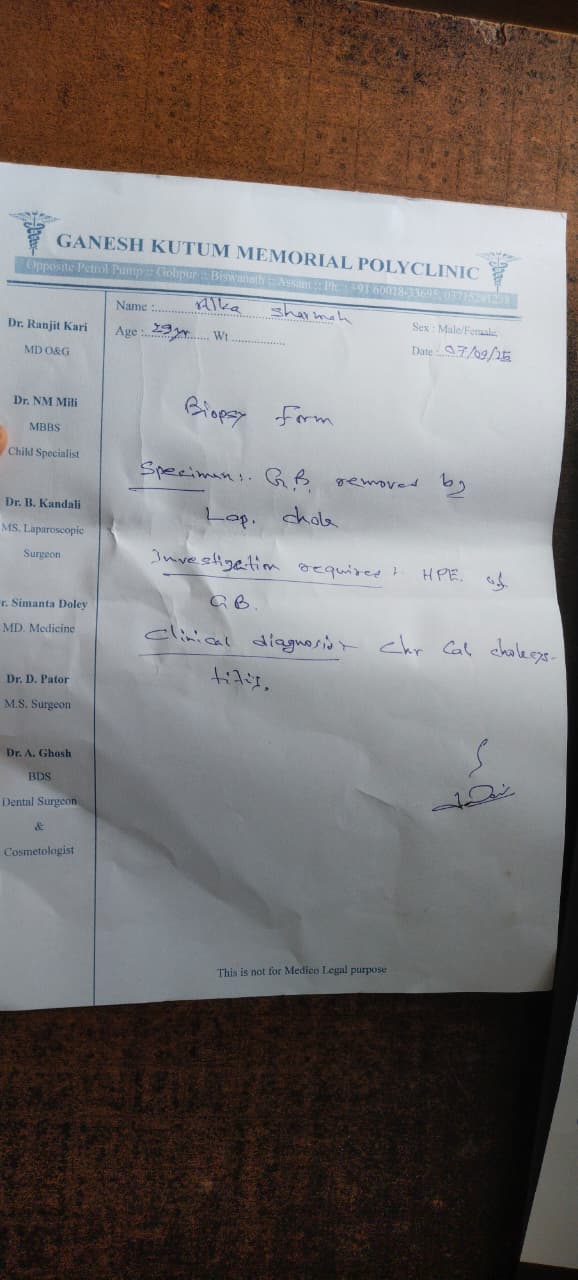 GANESH KUTUM MEMORIAL POLYCLINIC
Opposite Petrol Pump :: Gohpur :: Biswanath :: Assam :: Ph. : +91 60018-33695,
Name : Alka sharmah
Sex : Male/Female
Age : 29yr Wt
Date : 07/09/25
Dr. Ranjit Kari
MD O&G
Dr. NM Mili
MBBS
Child Specialist
Dr. B. Kandali
MS. Laparoscopic
Surgeon
r. Simanta Doley
MD. Medicine
Dr. D. Pator
M.S. Surgeon
Dr. A. Ghosh
BDS
Dental Surgeon
&
Cosmetologist
Biopsy form
Specimen :. G.B. removed by
Lap. chole
Investigation required : HPE. of
GB.
Clinical diagnosis : Chr Cal cholecys-
titis.
This is not for Medico Legal purpose